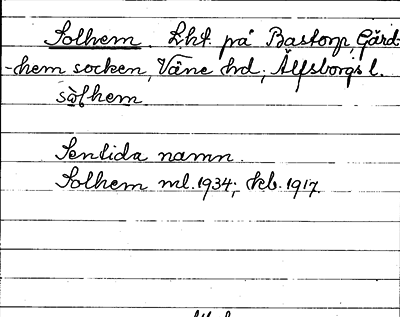 Solhem. Lht. på Bastorp, Gärd-
-hem socken, Väne hd, Älfsborgs l.
sòlhem.
Sentida namn.
Solhem ml. 1934; kb. 1917.